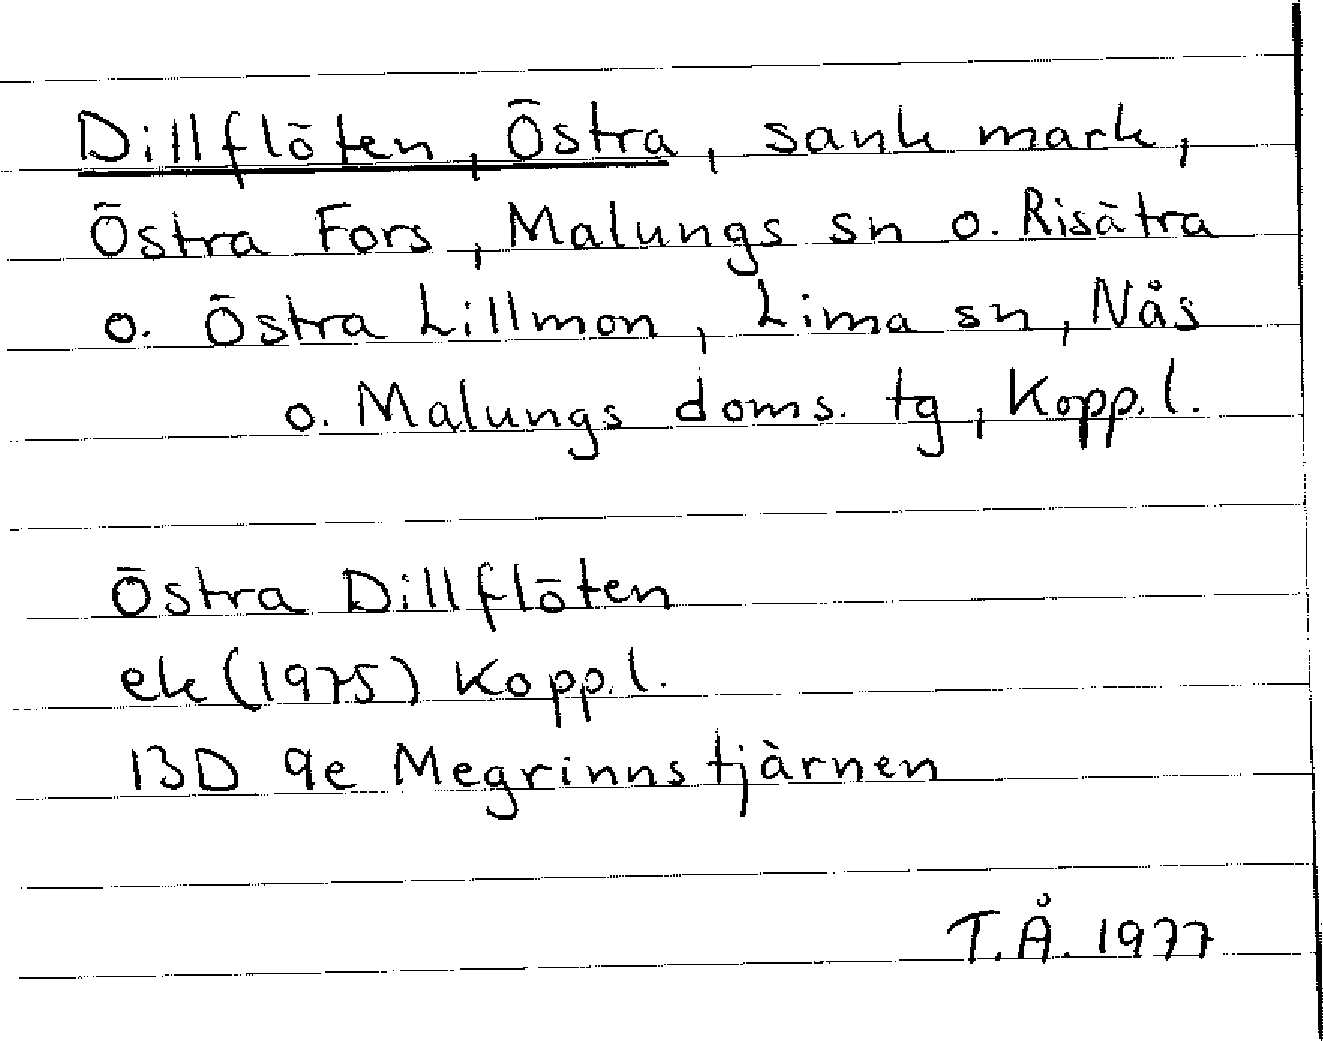 Dillflöten, Östra, sank mark,
Östra Fors, Malungs sn o. Risätra
o. Östra Lillmon, Lima sn, Nås
o. Malungs doms. tg, Kopp. l.
Östra Dillflöten
ek (1975) Kopp. l.
13D 9e Megrinnstjärnen
T.Å. 1977